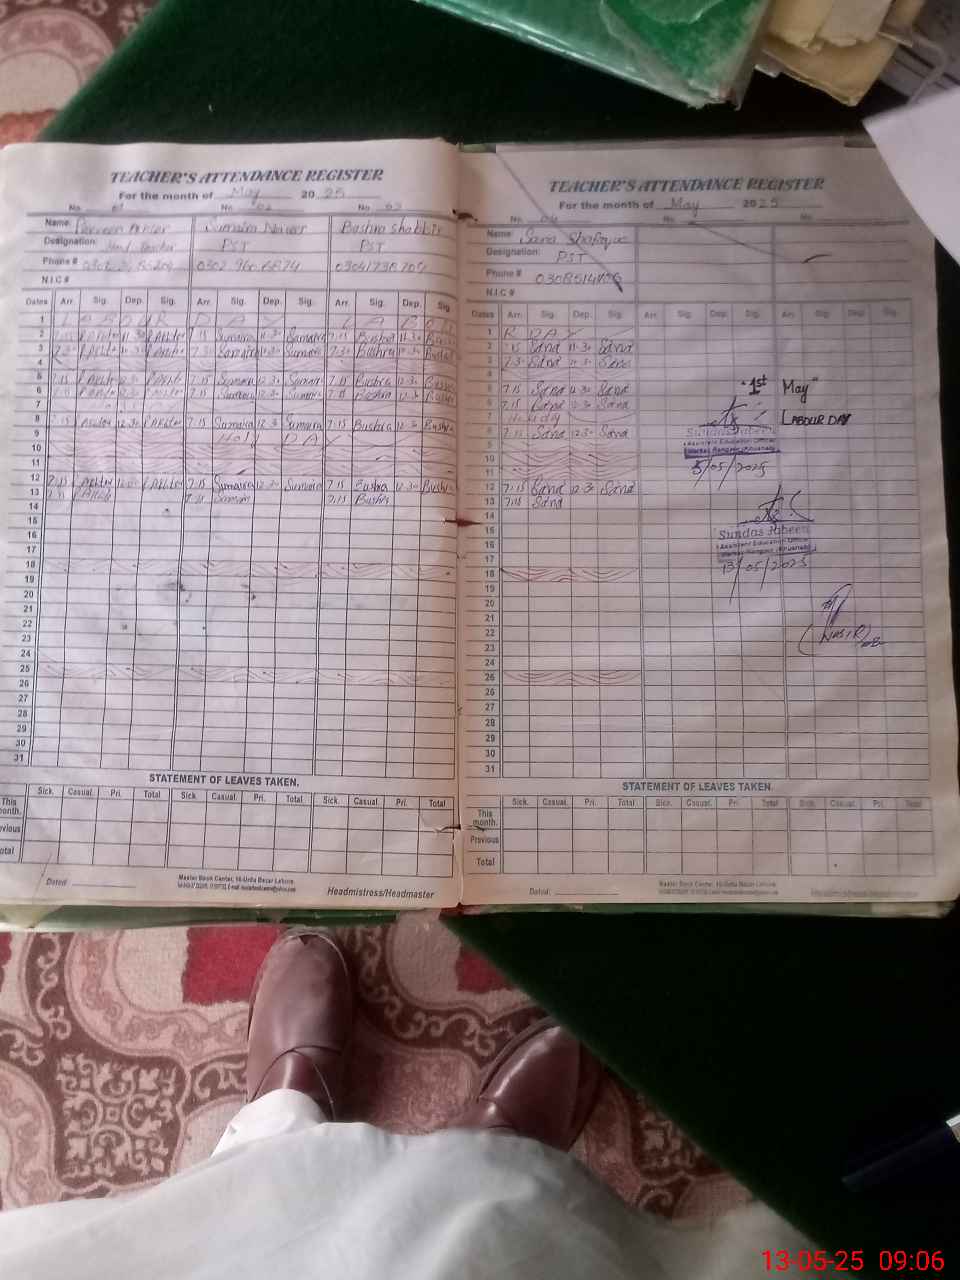 TEACHER'S ATTENDANCE REGISTER
For the month of May 2025
No. 01 No. 02 No. 03
Name: Perveen Akhter Sumaira Nawaz Bushra Shabbir
Designation: Head Teacher PST PST
Phone #
N.I.C #
Dates Arr. Sig. Dep. Sig. Arr. Sig. Dep. Sig. Arr. Sig. Dep. Sig.
1 LABOUR DAY LABOU
2 7:15 P.Akhter 11:30 P.Akhter 7:15 Sumaira 11:30 Sumaira 7:15 Bushra 11:30 Bushra
3 P.Akhter P.Akhter Sumaira Sumaira Bushra Bushra
4
5 7:15 P.Akhter 12:30 P.Akhter 7:15 Sumaira 12:30 Sumaira 7:15 Bushra 12:30 Bushra
6 7:15 P.Akhter 12:30 P.Akhter 7:15 Sumaira 12:30 Sumaira 7:15 Bushra 12:30 Bushra
7
8 7:15 P.Akhter 12:30 P.Akhter 7:15 Sumaira 12:30 Sumaira 7:15 Bushra 12:30 Bushra
9 Holi DAY
10
11
12 7:15 P.Akhter 12:30 P.Akhter 7:15 Sumaira 12:30 Sumaira 7:15 Bushra 12:30 Bushra
13 7:15 P.Akhter 7:15 Sumaira 7:15 Bushra
14
15
16
17
18
19
20
21
22
23
24
25
26
27
28
29
30
31
STATEMENT OF LEAVES TAKEN.
Sick. Casual. Pri. Total Sick. Casual. Pri. Total Sick. Casual. Pri. Total
This month.
Previous
Total
Dated:
Master Book Center, 16-Urdu Bazar Lahore.
Headmistress/Headmaster
TEACHER'S ATTENDANCE REGISTER
For the month of May 2025
No. 04 No. No.
Name: Sana Shafaqat
Designation: PST
Phone #
N.I.C #
Dates Arr. Sig. Dep. Sig. Arr. Sig. Dep. Sig. Arr. Sig. Dep. Sig.
1 R DAY
2 7:15 Sana 11:30 Sana
3 Sana Sana
4
5
6 7:15 Sana 12:30 Sana
7:15 Sana 12:30 Sana
7 Holiday
8 7:15 Sana 12:30 Sana
9
10
11
12 7:15 Sana 12:30 Sana
13 7:15 Sana
14
15
16
17
18
19
20
21
22
23
24
25
26
27
28
29
30
31
"1st May"
LABOUR DAY
Sundas Jabeen
Assistant Education Officer
5/05/2025
Sundas Jabeen
Assistant Education Officer
13/05/2025
(NASIR)
STATEMENT OF LEAVES TAKEN.
Sick. Casual. Pri. Total Sick. Casual. Pri. Total Sick. Casual. Pri. Total
This month.
Previous
Total
Dated:
Master Book Center, 16-Urdu Bazar Lahore.
Headmistress/Headmaster
13-05-25 09:06